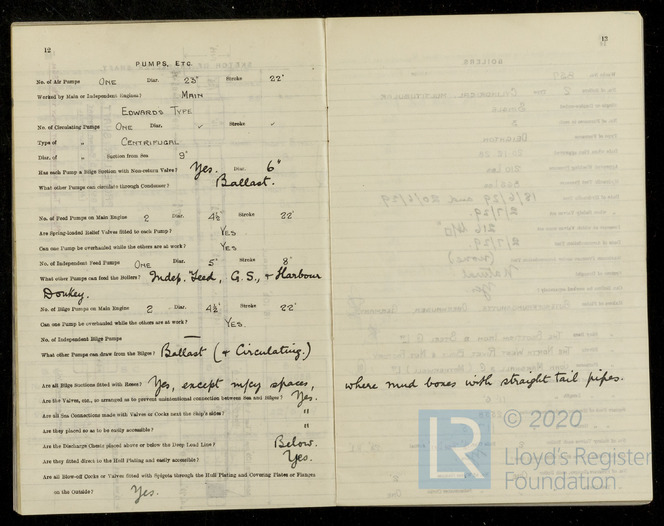 12
PUMPS, ETC.
No. of Air Pumps ONE Diar. 23" Stroke 22"
Worked by Main or Independent Engines? MAIN
EDWARDS TYPE
No. of Circulating Pumps ONE Diar. ✓ Stroke ✓
Type of " CENTRIFUGAL
Diar. of " Suction from Sea 9"
Has each Pump a Bilge Suction with Non-return Valve? Yes. Diar. 6"
What other Pumps can circulate through Condenser? Ballast.
No. of Feed Pumps on Main Engine 2 Diar. 4½" Stroke 22"
Are Spring-loaded Relief Valves fitted to each Pump? YES
Can one Pump be overhauled while the others are at work? YES
No. of Independent Feed Pumps ONE Diar. 5" Stroke 8"
What other Pumps can feed the Boilers? Indep. Feed, G.S., + Harbour
Donkey.
No. of Bilge Pumps on Main Engine 2 Diar. 4½" Stroke 22"
Can one Pump be overhauled while the others are at work? YES.
No. of Independent Bilge Pumps —
What other Pumps can draw from the Bilges? Ballast (+ Circulating.)
Are all Bilge Suctions fitted with Roses? Yes, except m/cy spaces, where mud boxes with straight tail pipes.
Are the Valves, &c., so arranged as to prevent unintentional connection between Sea and Bilges? Yes.
Are all Sea Connections made with Valves or Cocks next the Ship's sides? "
Are they placed so as to be easily accessible? "
Are the Discharge Chests placed above or below the Deep Load Line? Below.
Are they fitted direct to the Hull Plating and easily accessible? Yes.
Are all Blow-off Cocks or Valves fitted with Spigots through the Hull Plating and Covering Plates or Flanges
on the Outside? Yes.
13
© 2020
LR
Lloyd's Register
Foundation